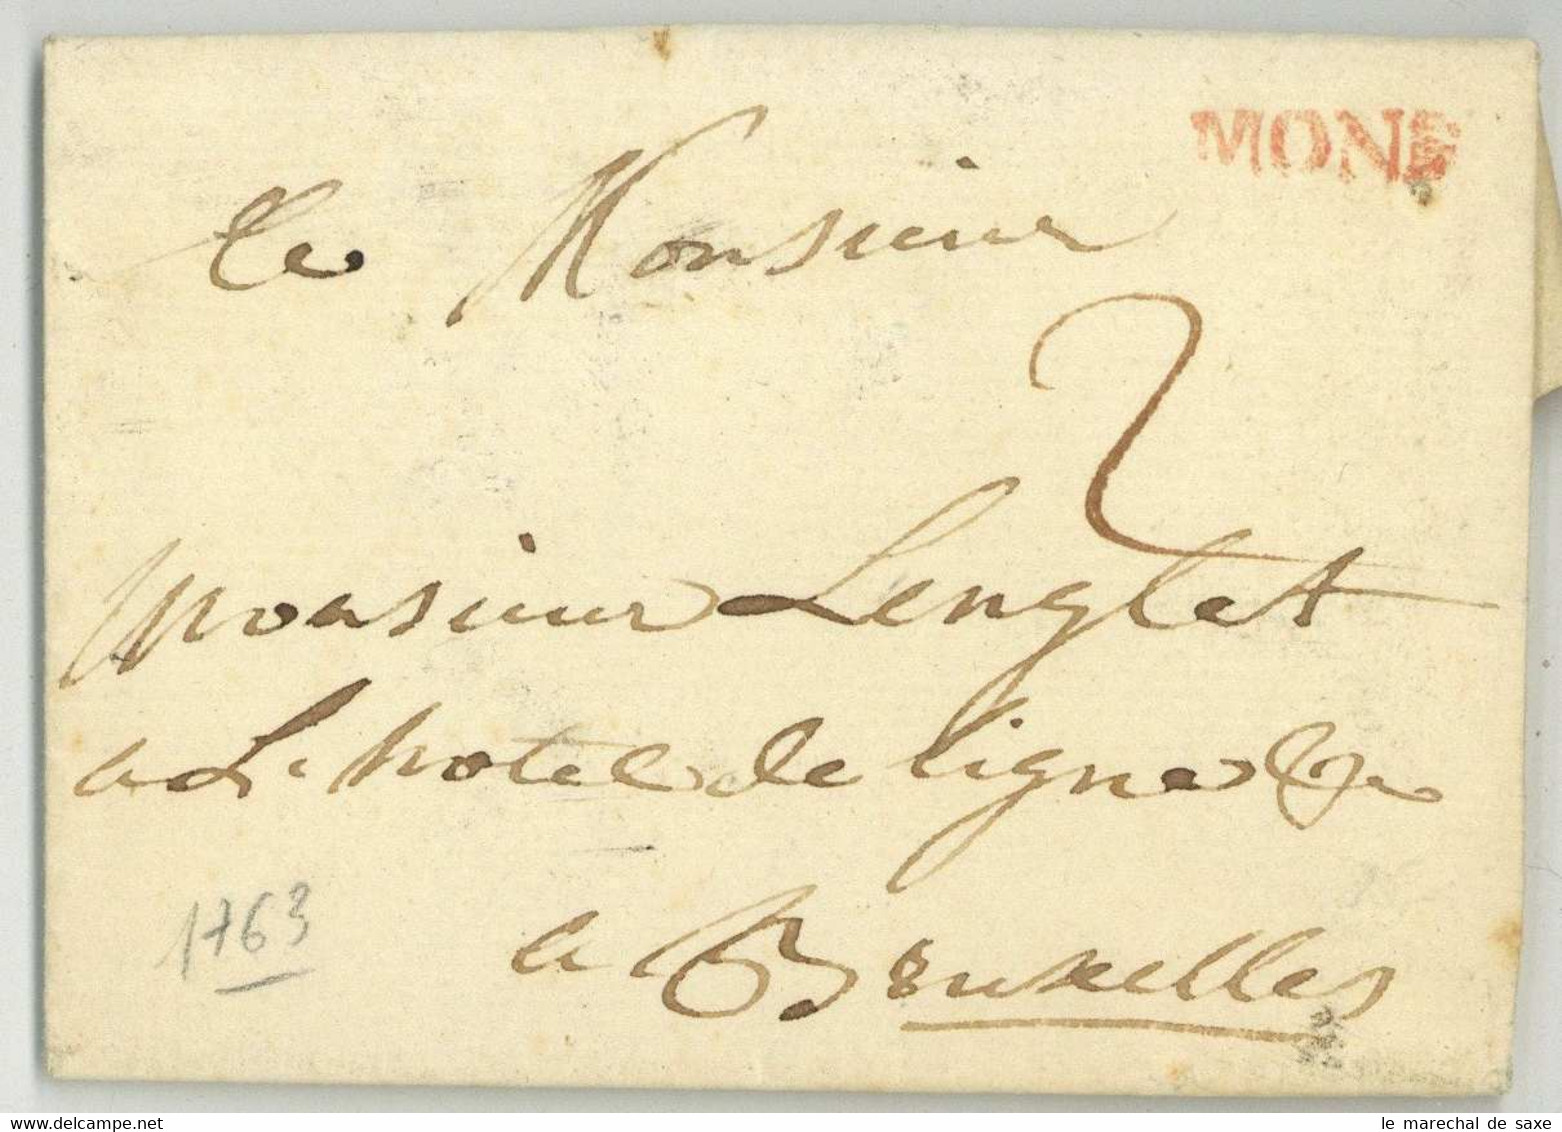 MONS
A Monsieur
2
Monsieur Lenglet
a L'hotel de Ligne &c
1763
a Bruxelles
le marechal de saxe